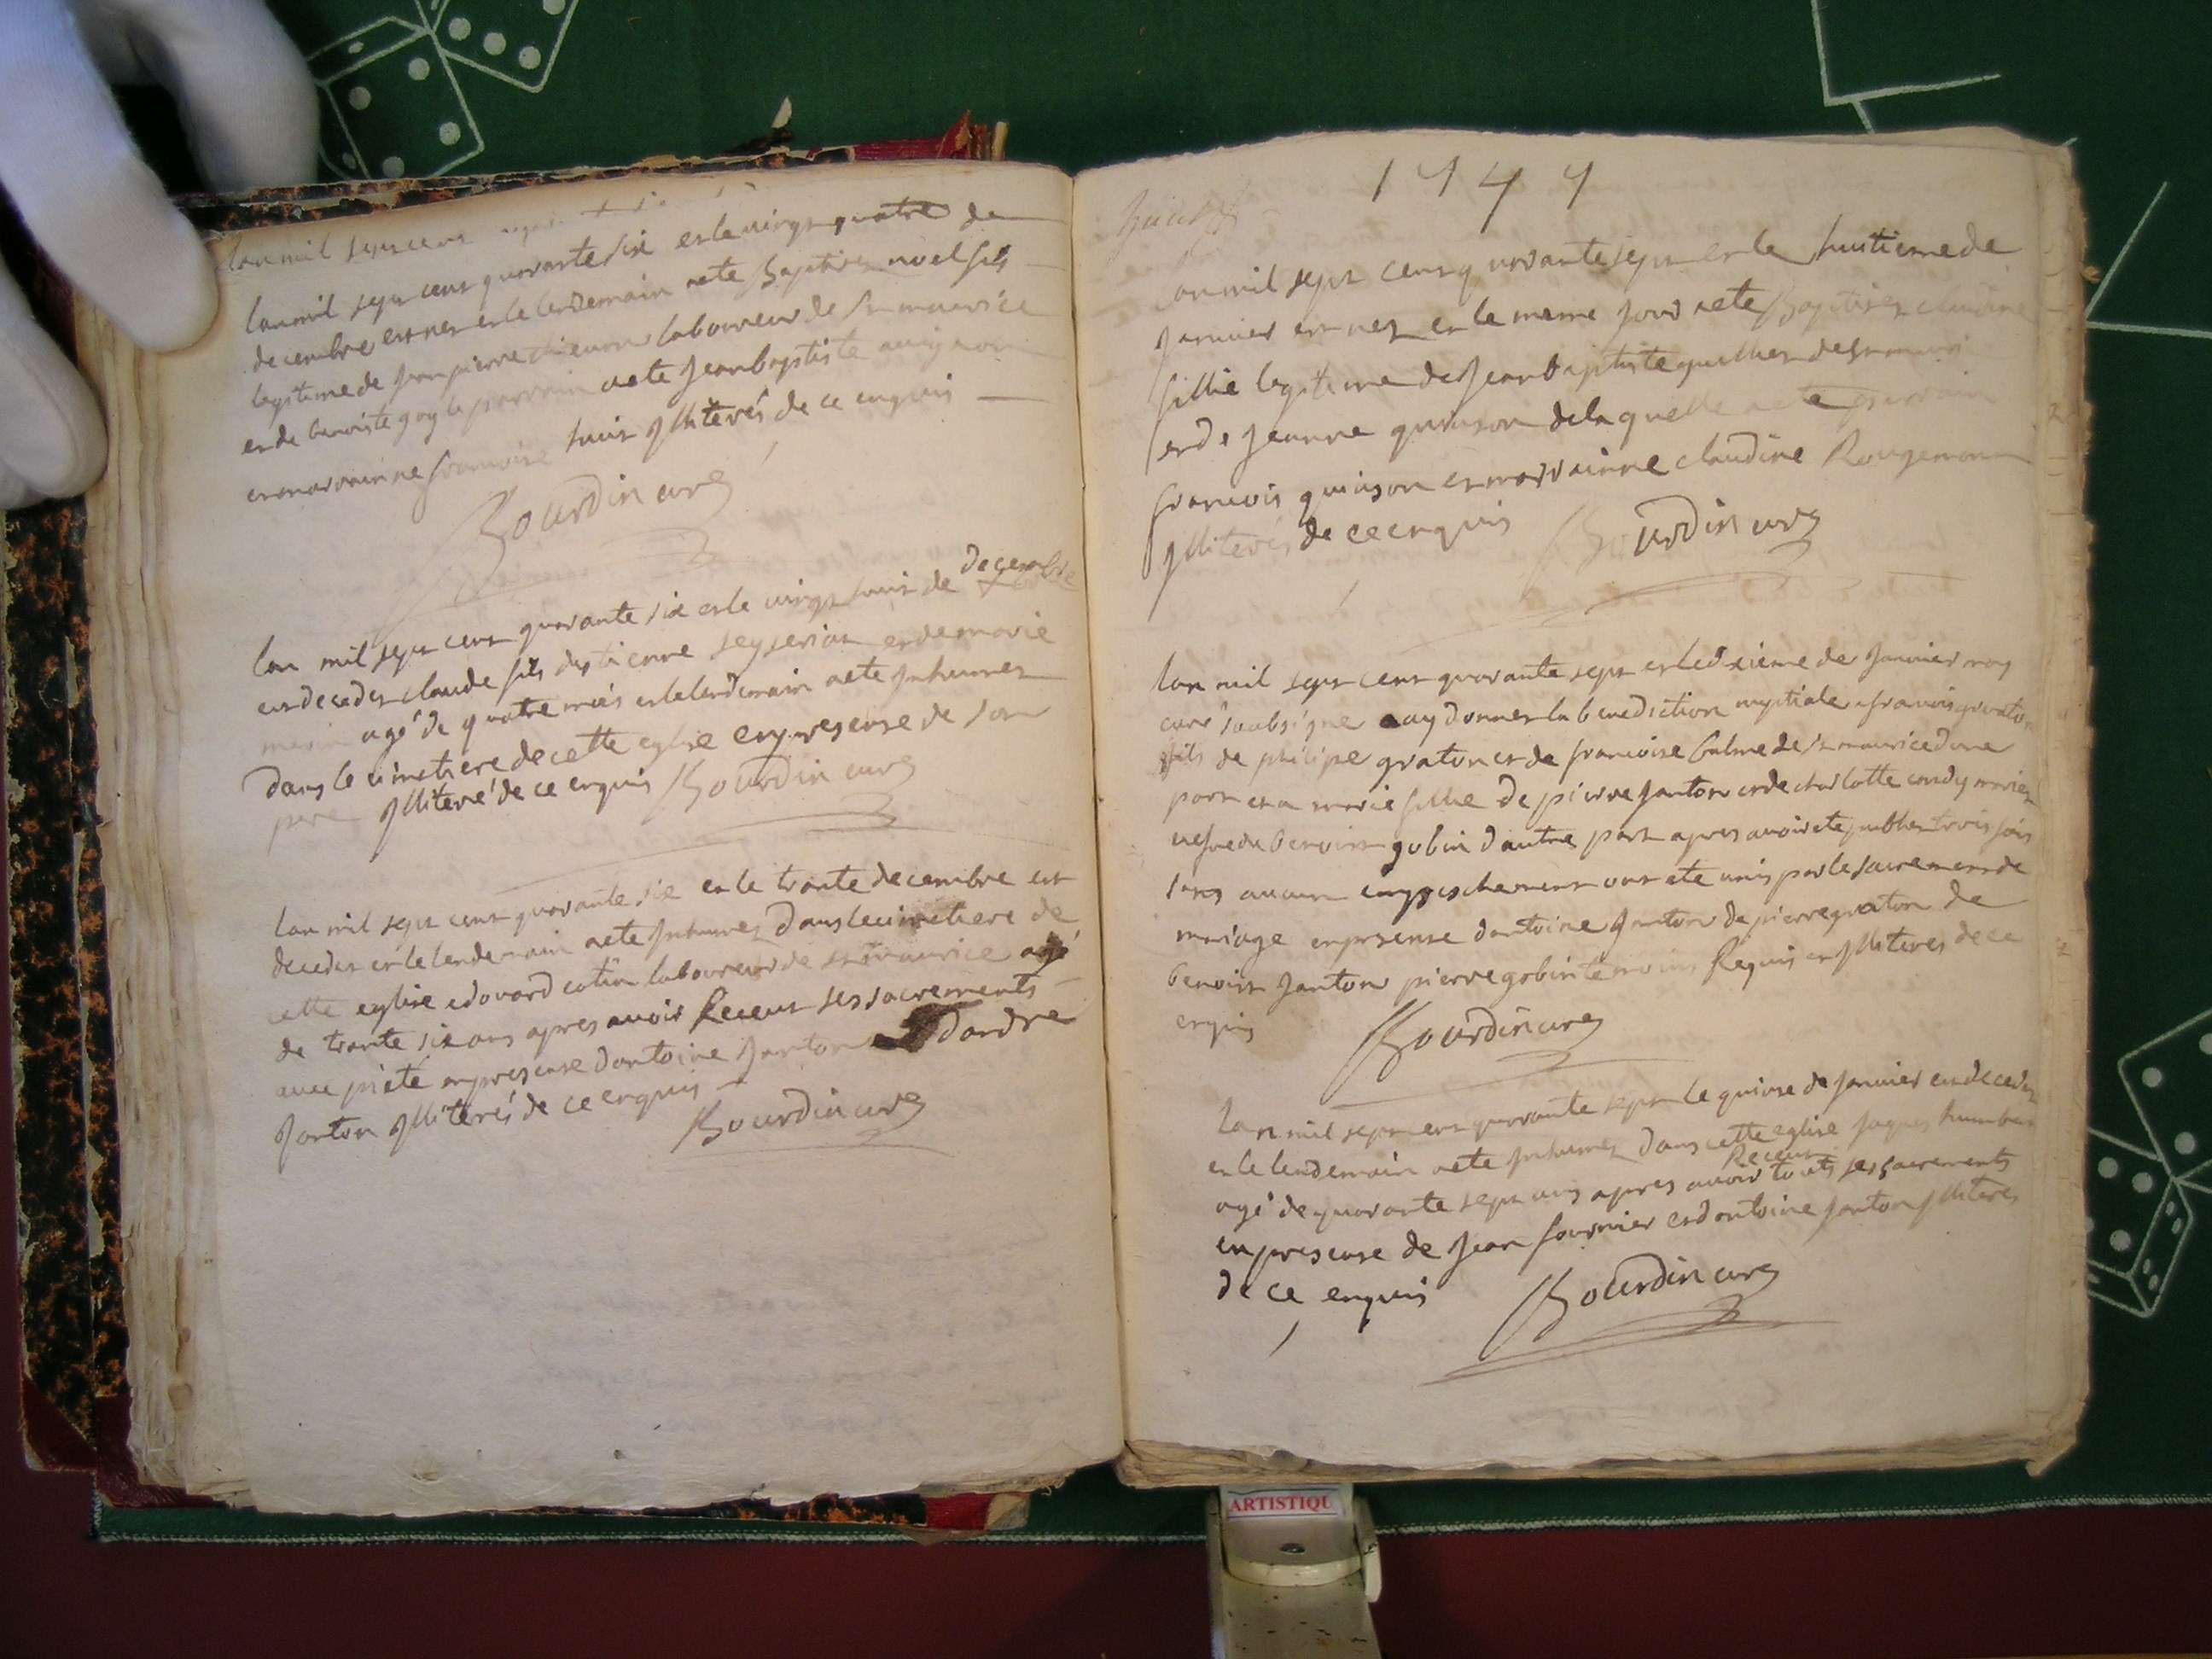 lan mil sept cens
lan mil sept cens quarante six et le vingt quatre de
decembre est nez et le lendemain aete Baptisez noel fils
legitime de Jean pierre laboureur de st maurice
et de benoiste goy le parrain aete Jean baptiste
et marrainne francoise huit Jlliterés de ce enquis
Bourdin curé
lan mil sept cens quarante six et le vingt huit de decembre
est decedez claude fils destienne seyseriat et de marie
agé de quatre mois et le lendemain aete Jnhumez
dans le cimetiere de cette eglise en presense de son
pere Jlliteré de ce enquis Bourdin curé
lan mil sept cens quarante six et le trante decembre est
decedez et le lendemain aete Jnhumez dans le cimetiere de
cette eglise edouard cotin laboureur de st maurice agé
de trante six ans apres avoir Receut ses sacrements
avec pieté en presense dantoine Janton dandre
Janton Jlliterés de ce enquis
Bourdin curé
1747
lan mil sept cens quarante sept et le huitieme de
Janvier est nez et le meme Jour aete Baptisez claudine
fillie legitime de Jean baptiste quillet de st mauri
et de Jeanne quinson de laquelle aete parrain
francois quinson et marrainne claudine Rougemont
Jlliterés de ce enquis Bourdin curé
lan mil sept cens quarante sept et le dixieme de Janvier moy
curé soubsigne ay donner la benediction nuptiale a francois graton
fils de philipe graton et de francoise balme de st maurice dune
part et a marie fillie de pierre Janton et de charlotte condy mariez
vefve de benoist gobin dautre part apres avoir ete publiez trois fois
sans aucun empeschement ont ete unis par le sacrement de
mariage en presense dantoine Janton de pierre graton de
benoist Janton pierre gobin temoins Requis et Jlliteres de ce
enquis Bourdin curé
lan mil sept cens quarante sept le quinse de Janvier est decedez
et le lendemain aete Jnhumez dans cette eglise Jaques humbert
agé de quarante sept ans apres avoir Receut touts ses sacrements
en presense de Jean fournier et dantoine Janton Jlliteres
de ce enquis Bourdin curé
ARTISTIQU